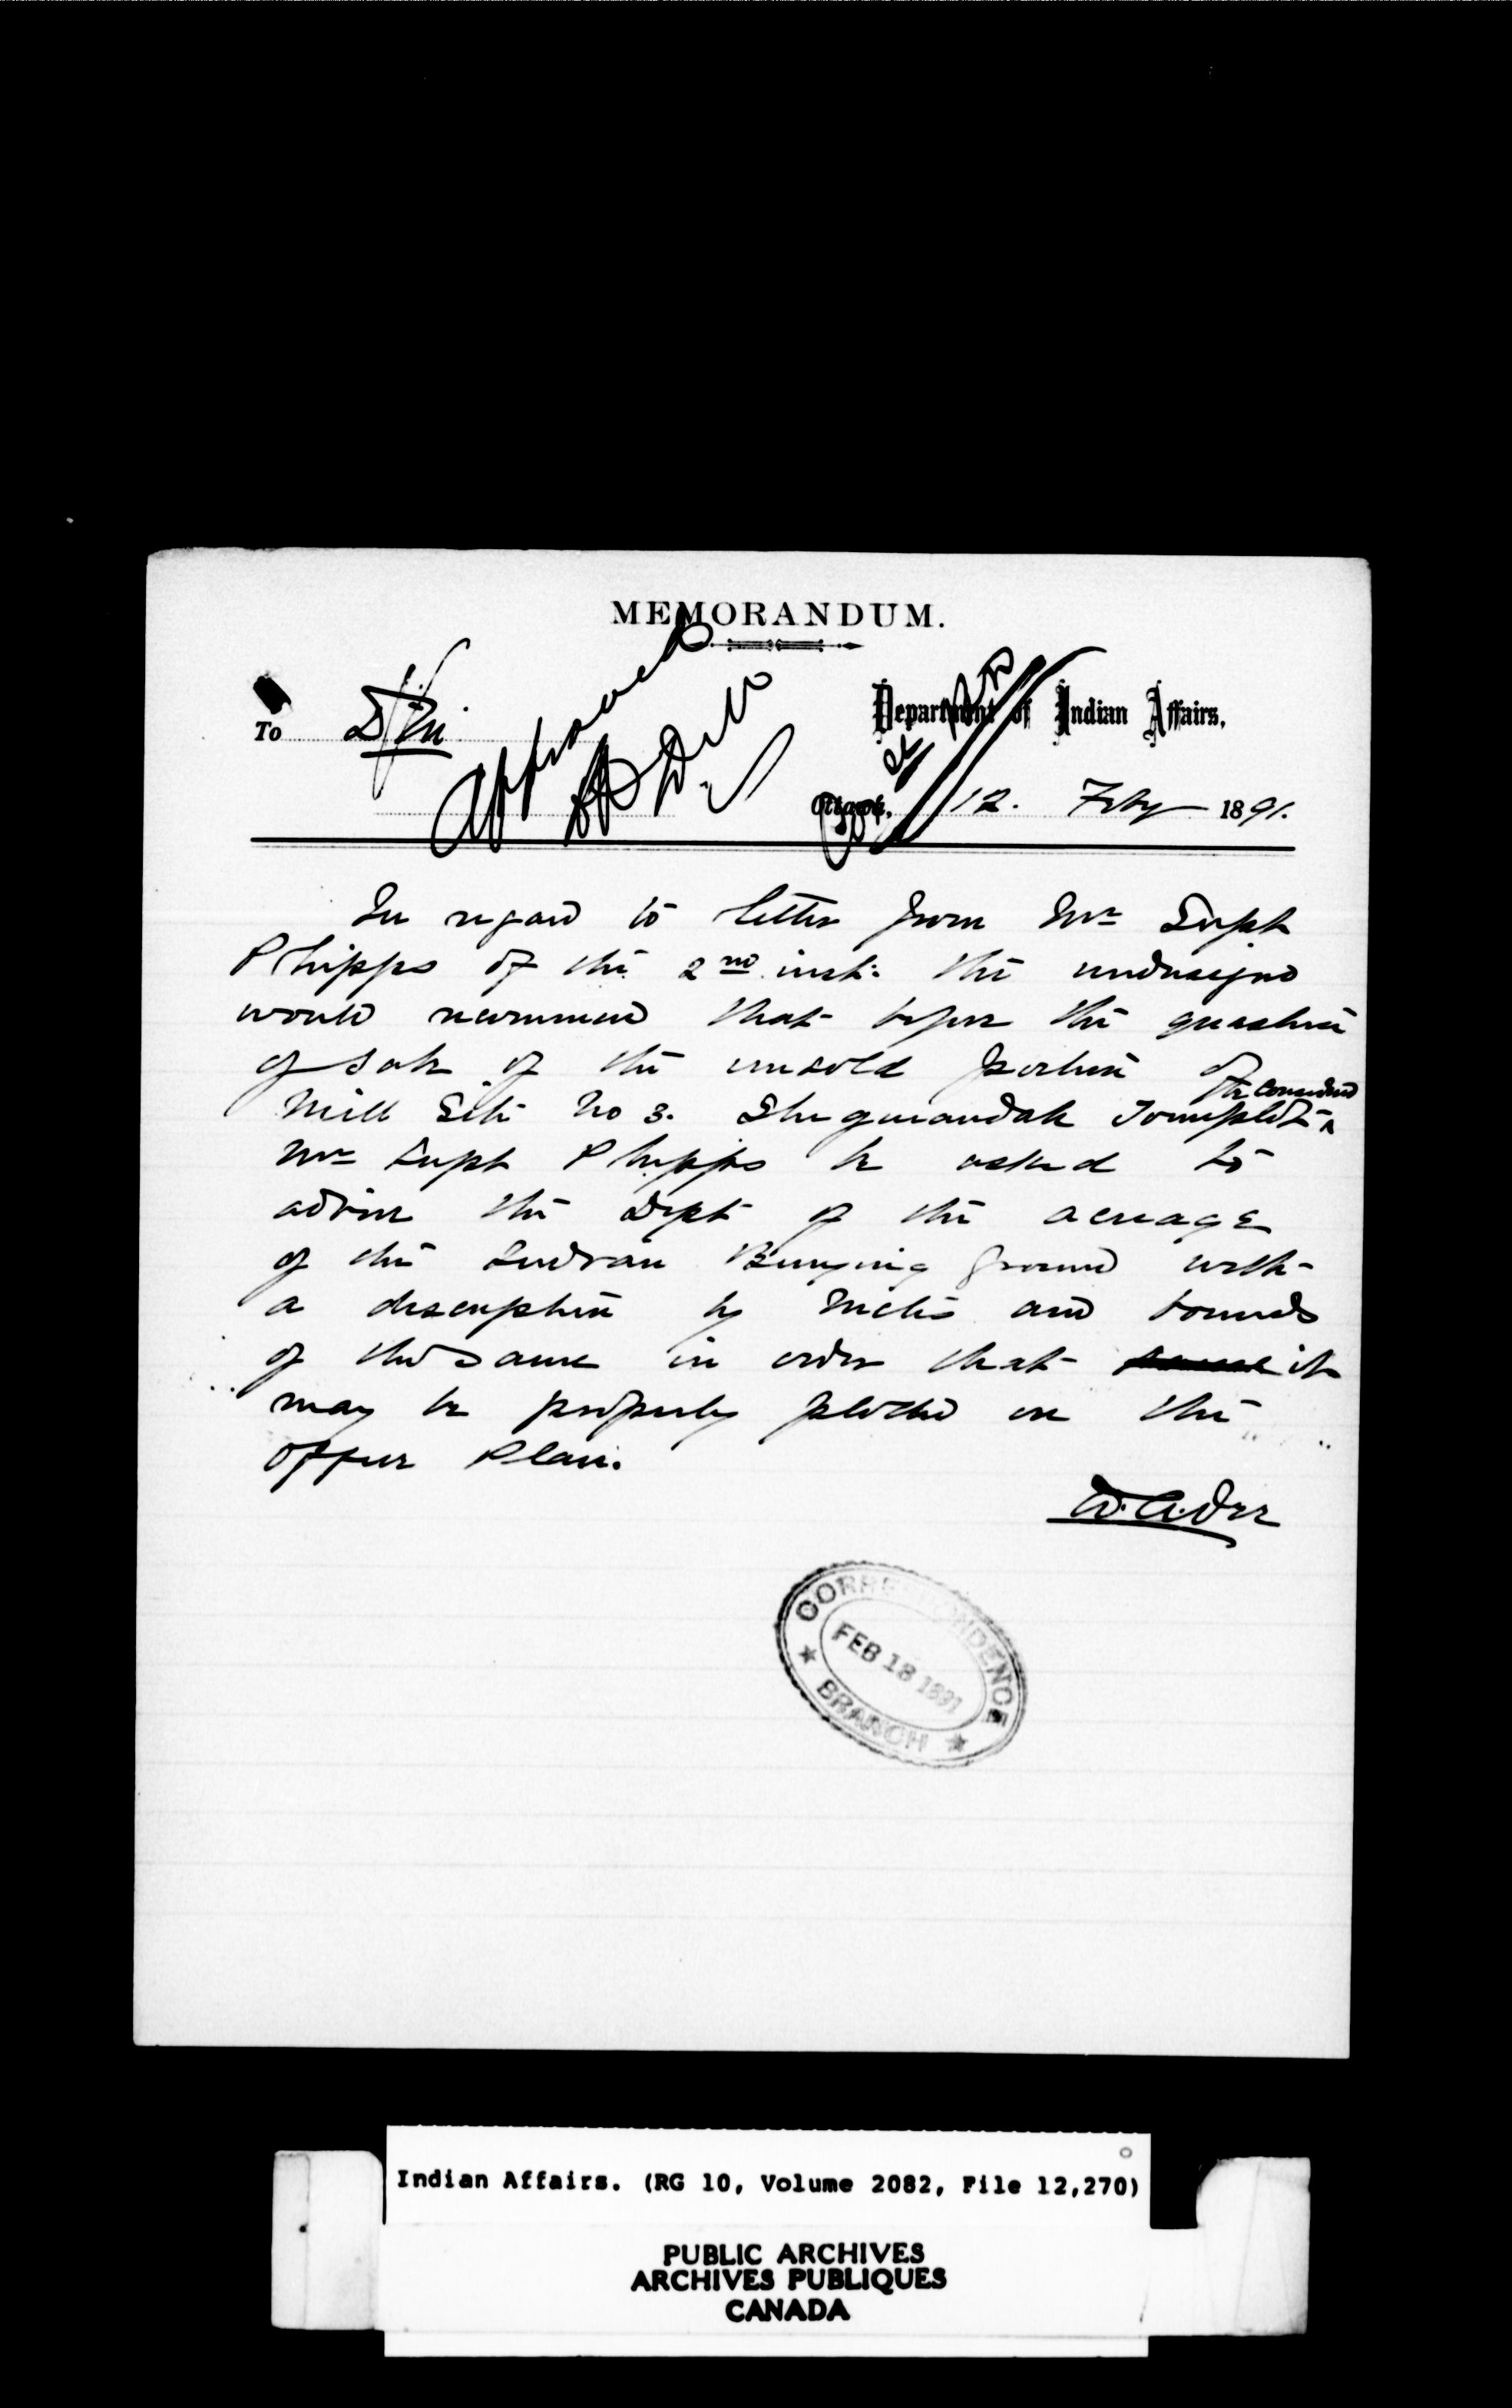 MEMORANDUM.
Approved
To
Department of Indian Affairs,
Ottawa, 12. Feby 1891.
In regard to letter from Mr Supt
Phipps of the 2nd inst. the undersigned
would recommend that before the question
of sale of the unsold portion of
Mill Site No 3. Sheguiandah Townplot be considered
Mr Supt Phipps be asked to
advise the Dept of the acreage
of the Indian Burying Ground with
a description by metes and bounds
of the same in order that same it
may be properly plotted on the
office Plan.
W.A. Orr
CORRESPONDENCE
FEB 18 1891
BRANCH
Indian Affairs. (RG 10, Volume 2082, File 12,270)
PUBLIC ARCHIVES
ARCHIVES PUBLIQUES
CANADA